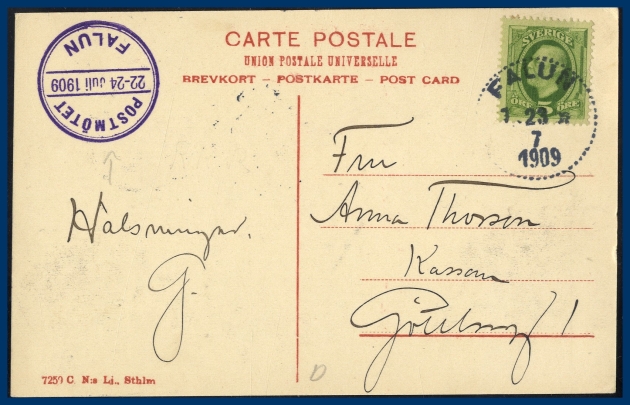 CARTE POSTALE
UNION POSTALE UNIVERSELLE
BREVKORT – POSTKARTE – POST CARD
POSTMÖTET
22-24 Juli 1909
FALUN
SVERIGE
5
ÖRE ÖRE
FALUN
23
7
1909
Hälsningar.
G.
Fru
Anna Thorson
Göteborg 1
7259 C. N:s Lj., Sthlm
D